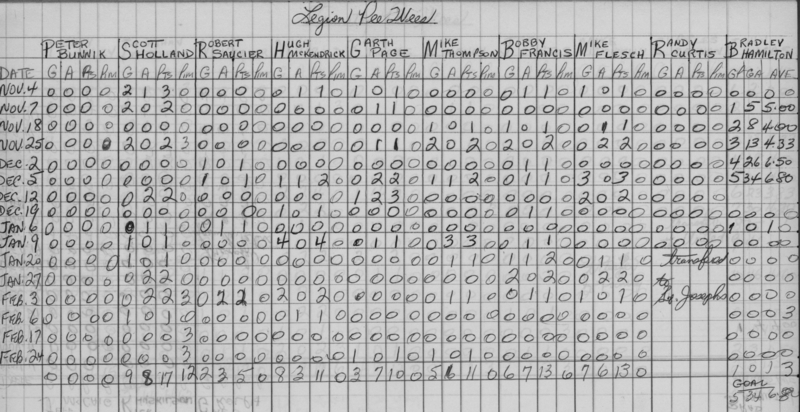 Legion Pee Wees
PETER BUNNIK SCOTT HOLLAND ROBERT SAUCIER HUGH MCKENDRICK GARTH PAGE MIKE THOMPSON BOBBY FRANCIS MIKE FLESCH RANDY CURTIS BRADLEY HAMILTON
DATE G A Pts Pim G A Pts Pim G A Pts Pim G A Pts Pim G A Pts Pim G A Pts Pim G A Pts Pim G A Pts Pim G A Pts Pim GP GA AVE.
NOV. 4 0 0 0 0 2 1 3 0 0 0 0 0 0 1 1 0 1 0 1 0 0 0 0 0 0 1 1 0 1 0 1 0 0 0 0 0 0 0 0
NOV. 7 0 0 0 0 2 0 2 0 0 0 0 0 0 0 0 0 0 1 1 0 0 0 0 0 0 0 0 0 0 0 0 0 0 0 0 0 1 5 5.00
NOV. 18 0 0 0 0 0 0 0 0 0 0 0 0 0 0 0 0 0 0 0 0 1 0 1 0 1 0 1 0 0 1 1 0 0 0 0 0 2 8 4.00
NOV. 25 0 0 0 0 2 0 2 3 0 0 0 0 0 0 0 0 0 1 1 0 2 0 2 0 2 0 2 0 0 2 2 0 0 0 0 0 3 13 4.33
DEC. 2 0 0 0 0 0 0 0 0 1 0 1 0 0 0 0 0 0 0 0 0 0 0 0 0 0 1 1 0 0 0 0 0 0 0 0 0 4 26 6.50
DEC. 5 0 0 0 0 0 0 0 0 1 0 1 0 1 1 2 0 0 2 2 0 1 1 2 0 0 1 1 0 3 0 3 0 0 0 0 0 5 34 6.80
DEC. 12 0 0 0 0 0 2 2 0 0 0 0 0 1 2 3 0 2 0 2 0
DEC. 19 0 0 0 0 0 0 0 0 0 0 0 0 1 0 1 0 0 0 0 0 0 0 0 0 0 1 1 0 0 0 0 0 0 0 0 0
JAN. 6 0 0 0 0 0 1 1 0 0 1 1 0 1 0 1 0
JAN. 9 0 0 0 0 1 0 1 0 0 0 0 0 4 0 4 0 0 1 1 0 0 3 3 0 0 1 1 0 0 0 0 0 0 0 0 0
JAN. 20 0 0 0 0 1 0 1 0 0 0 0 0 0 0 0 0 0 0 0 0 0 1 1 0 1 1 2 0 0 1 1 0 transfered 0 0 0 0
JAN. 27 0 0 0 0 0 2 2 0 0 0 0 0 0 0 0 0 0 0 0 0 0 0 0 0 2 0 2 0 0 2 2 0 to 0 0 0 0
FEB. 3 0 0 0 0 0 2 2 3 0 2 2 0 2 0 2 0 0 0 0 0 0 1 1 0 0 1 1 0 1 0 1 0 St. Josephs 0 0 0 0
FEB. 6 0 0 0 0 1 0 1 0 0 0 0 0 0 1 1 0 0 0 0 0 0 0 0 0 0 0 0 0 0 0 0 0 0 0 0 3
FEB. 17 0 0 0 0 0 0 0 3 0 0 0 0 0 0 0 0 0 0 0 0 0 0 0 0 0 0 0 0 0 0 0 0 0 0 0 0
FEB. 24 0 0 0 0 0 0 0 3 0 0 0 0 0 0 0 0 1 0 1 0 1 0 1 0 0 0 0 0 0 0 0 0 0 0 0 0
0 0 0 0 9 8 17 12 2 3 5 0 8 3 11 0 3 7 10 0 5 6 11 0 6 7 13 0 7 6 13 0 1 0 1 3
GOAL
5 34 6.80